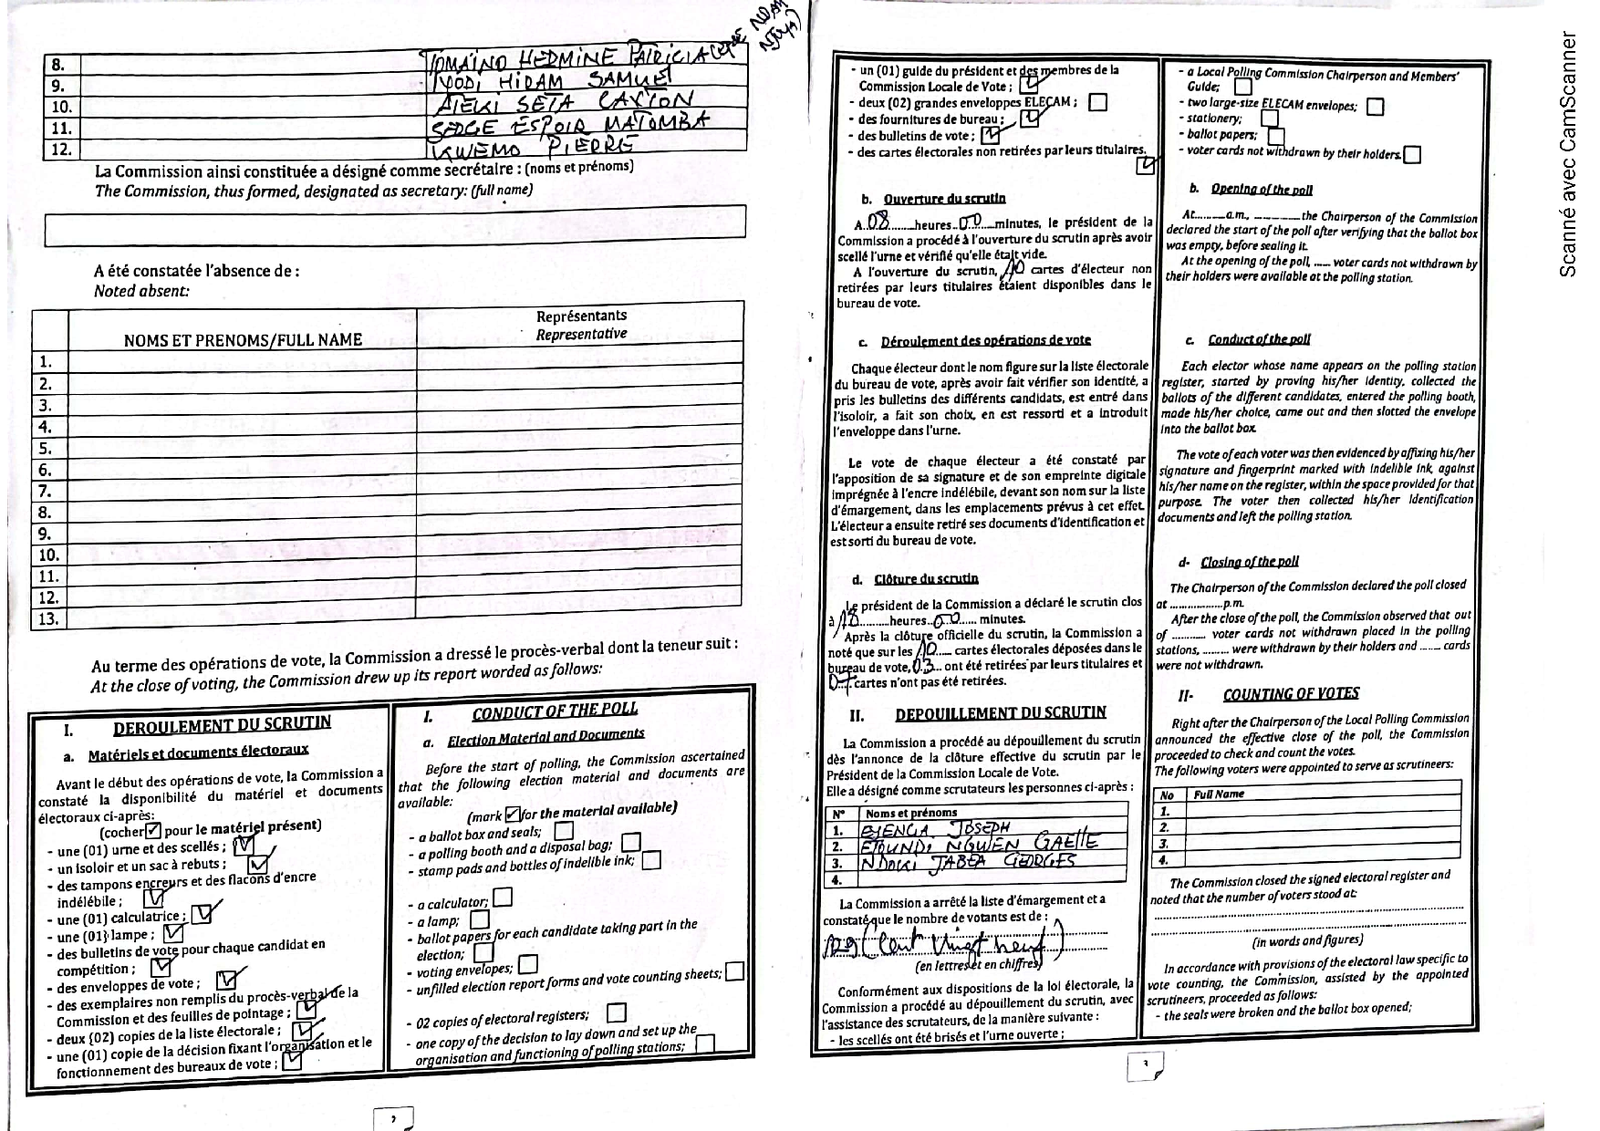 8. TOMAINO HERMINE PATRICIA
NDAM
NJOYA)
9. IYODI HIRAM SAMUEL
10. ATEKI SETA CAXTON
11. SERGE ESPOIR MATOMBA
12. KWEMO PIERRE
La Commission ainsi constituée a désigné comme secrétaire : (noms et prénoms)
The Commission, thus formed, designated as secretary: (full name)
A été constatée l'absence de :
Noted absent:
NOMS ET PRENOMS/FULL NAME
Représentants
Representative
1.
2.
3.
4.
5.
6.
7.
8.
9.
10.
11.
12.
13.
Au terme des opérations de vote, la Commission a dressé le procès-verbal dont la teneur suit :
At the close of voting, the Commission drew up its report worded as follows:
I. DEROULEMENT DU SCRUTIN
a. Matériels et documents électoraux
Avant le début des opérations de vote, la Commission a
constaté la disponibilité du matériel et documents
électoraux ci-après:
(cocher ✓ pour le matériel présent)
- une (01) urne et des scellés ;
- un isoloir et un sac à rebuts ;
- des tampons encreurs et des flacons d'encre
indélébile ;
- une (01) calculatrice ;
- une (01) lampe ;
- des bulletins de vote pour chaque candidat en
compétition ;
- des enveloppes de vote ;
- des exemplaires non remplis du procès-verbal de la
Commission et des feuilles de pointage ;
- deux (02) copies de la liste électorale ;
- une (01) copie de la décision fixant l'organisation et le
fonctionnement des bureaux de vote ;
I. CONDUCT OF THE POLL
a. Election Material and Documents
Before the start of polling, the Commission ascertained
that the following election material and documents are
available:
(mark ✓ for the material available)
- a ballot box and seals;
- a polling booth and a disposal bag;
- stamp pads and bottles of indelible ink;
- a calculator;
- a lamp;
- ballot papers for each candidate taking part in the
election;
- voting envelopes;
- unfilled election report forms and vote counting sheets;
- 02 copies of electoral registers;
- one copy of the decision to lay down and set up the
organisation and functioning of polling stations;
2
- un (01) guide du président et des membres de la
Commission Locale de Vote ;
- deux (02) grandes enveloppes ELECAM ;
- des fournitures de bureau ;
- des bulletins de vote ;
- des cartes électorales non retirées par leurs titulaires.
b. Ouverture du scrutin
A 08 heures 00 minutes, le président de la
Commission a procédé à l'ouverture du scrutin après avoir
scellé l'urne et vérifié qu'elle était vide.
A l'ouverture du scrutin, 10 cartes d'électeur non
retirées par leurs titulaires étaient disponibles dans le
bureau de vote.
c. Déroulement des opérations de vote
Chaque électeur dont le nom figure sur la liste électorale
du bureau de vote, après avoir fait vérifier son identité, a
pris les bulletins des différents candidats, est entré dans
l'isoloir, a fait son choix, en est ressorti et a introduit
l'enveloppe dans l'urne.
Le vote de chaque électeur a été constaté par
l'apposition de sa signature et de son empreinte digitale
imprégnée à l'encre indélébile, devant son nom sur la liste
d'émargement, dans les emplacements prévus à cet effet.
L'électeur a ensuite retiré ses documents d'identification et
est sorti du bureau de vote.
d. Clôture du scrutin
Le président de la Commission a déclaré le scrutin clos
à 18 heures 00 minutes.
Après la clôture officielle du scrutin, la Commission a
noté que sur les 10 cartes électorales déposées dans le
bureau de vote, 03 ont été retirées par leurs titulaires et
07 cartes n'ont pas été retirées.
II. DEPOUILLEMENT DU SCRUTIN
La Commission a procédé au dépouillement du scrutin
dès l'annonce de la clôture effective du scrutin par le
Président de la Commission Locale de Vote.
Elle a désigné comme scrutateurs les personnes ci-après :
N° Noms et prénoms
1. EYENGA JOSEPH
2. ETOUNDI NGUEN GAELLE
3. NDOKI JABEA GEORGES
4.
La Commission a arrêté la liste d'émargement et a
constaté que le nombre de votants est de :
129 (Cent vingt neuf)
(en lettres et en chiffres)
Conformément aux dispositions de la loi électorale, la
Commission a procédé au dépouillement du scrutin, avec
l'assistance des scrutateurs, de la manière suivante :
- les scellés ont été brisés et l'urne ouverte ;
- a Local Polling Commission Chairperson and Members'
Guide;
- two large-size ELECAM envelopes;
- stationery;
- ballot papers;
- voter cards not withdrawn by their holders.
b. Opening of the poll
At........a.m., ........the Chairperson of the Commission
declared the start of the poll after verifying that the ballot box
was empty, before sealing it.
At the opening of the poll, ..... voter cards not withdrawn by
their holders were available at the polling station.
c. Conduct of the poll
Each elector whose name appears on the polling station
register, started by proving his/her identity, collected the
ballots of the different candidates, entered the polling booth,
made his/her choice, came out and then slotted the envelope
into the ballot box.
The vote of each voter was then evidenced by affixing his/her
signature and fingerprint marked with indelible ink, against
his/her name on the register, within the space provided for that
purpose. The voter then collected his/her identification
documents and left the polling station.
d- Closing of the poll
The Chairperson of the Commission declared the poll closed
at ..................p.m.
After the close of the poll, the Commission observed that out
of ........... voter cards not withdrawn placed in the polling
stations, ........ were withdrawn by their holders and ....... cards
were not withdrawn.
II- COUNTING OF VOTES
Right after the Chairperson of the Local Polling Commission
announced the effective close of the poll, the Commission
proceeded to check and count the votes.
The following voters were appointed to serve as scrutineers:
No Full Name
1.
2.
3.
4.
The Commission closed the signed electoral register and
noted that the number of voters stood at:
(in words and figures)
In accordance with provisions of the electoral law specific to
vote counting, the Commission, assisted by the appointed
scrutineers, proceeded as follows:
- the seals were broken and the ballot box opened;
3
Scanné avec CamScanner